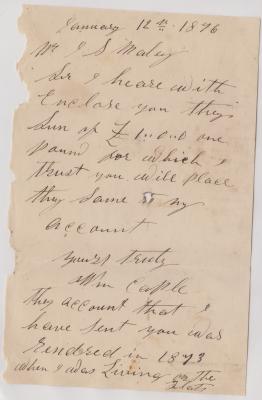 January 12th 1896
Mr J S Maley
Sir I heare with
Enclose you they
sum of £ 1 one
pound for which I
trust you will place
they same to my
account
yours truly
Wm Caple
they account that I
have sent you was
Rendred in 1893
when I was Living on the
flats